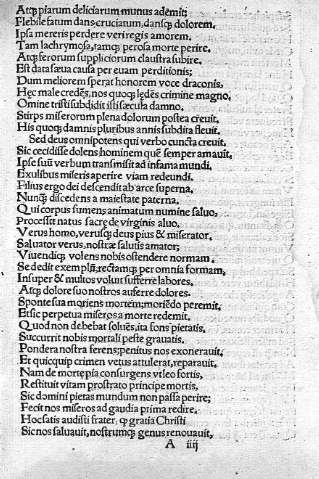 Atq; piarum deliciarum munus ademit;
Flebile fatum dans, cruciatum, dansq; dolorem.
Ipsa mereris perdere veri regis amorem.
Tam lachrymosa, tamq; perosa morte perire.
Atq; ferorum suppliciorum claustra subire.
Est data sæua causa per euam perditionis;
Dum meliorem sperat honorem voce draconis,
Hęc male credẽs, nos quoq; lędẽs crimine magno,
Omine tristi subdidit isti sęcula damno.
Stirps miserorum plena dolorum postea creuit.
His quoq; damnis pluribus annis subdita fleuit.
Sed deus omnipotens qui verbo cuncta creuit.
Sic cecidisse dolens hominem quẽ semper amauit.
Ipse suũ verbum transmisit ad infama mundi.
Exulibus miseris aperire viam redeundi.
Filius ergo dei descendit ab arce superna.
Nunq; discedens a maiestate paterna.
Qui corpus sumens animatum numine saluo,
Processit natus sacre de virginis aluo.
Verus homo, verusq; deus pius & miserator.
Saluator verus, nostræ salutis amator;
Viuendiq; volens nobis ostendere normam.
Se dedit exemplũ; rectamq; per omnia formam,
Insuper & multos voluit sufferre labores.
Atq; dolore suo nostros auferre dolores.
Sponte sua moriens mortem; moriẽdo peremit.
Et sic perpetua miseros a morte redemit.
Quod non debebat soluẽs, ita fons pietatis.
Succurrit nobis mortali peste grauatis.
Pondera nostra ferens; penitus nos exonerauit.
Et quicquip crimen vetus attulerat, reparauit.
Nam de morte pia consurgens vt leo fortis,
Restituit vitam prostrato principe mortis.
Sic domini pietas mundum non passa perire;
Fecit nos miseros ad gaudia prima redire.
Hoc satis audisti frater, q; gratia Christi
Sic nos saluauit, nostrumq; genus renouauit.
A iiij